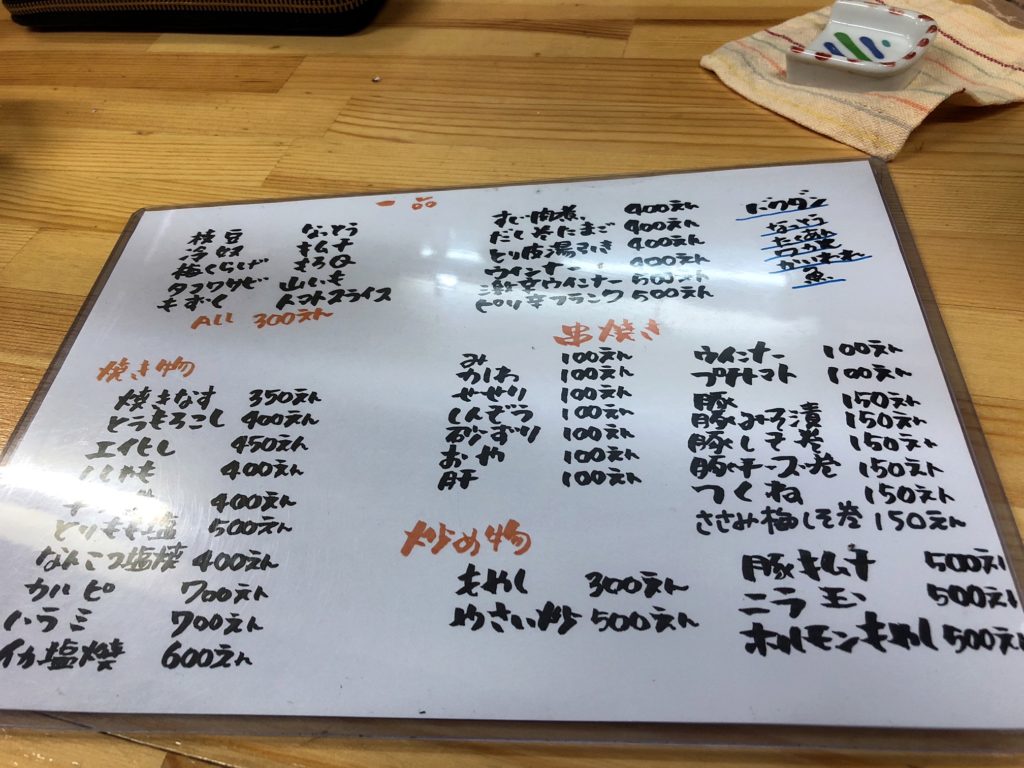 一品
枝豆 なっとう
冷奴 キムチ
梅くらげ もろQ
タコワサビ 山いも
もずく トマトスライス
ALL 300えん
すじ肉煮 400えん
だし巻たまご 400えん
とり皮湯びき 400えん
ウインナー 400えん
激辛ウインナー 500えん
ピリ辛フランク 500えん
バクダン
なっとう
たくあん
かいわれ
魚
焼き物
焼きなす 350えん
とうもろこし 400えん
エイヒレ 450えん
ししゃも 400えん
400えん
とりもも塩 500えん
なんこつ塩焼 400えん
カルビ 700えん
ハラミ 700えん
イカ塩焼 600えん
串焼き
み 100えん
かしわ 100えん
せせり 100えん
しんぞう 100えん
砂ずり 100えん
おや 100えん
肝 100えん
ウインナー 100えん
プチトマト 100えん
豚 150えん
豚みそ漬 150えん
豚しそ巻 150えん
豚チーズ巻 150えん
つくね 150えん
ささみ梅しそ巻 150えん
炒め物
もやし 300えん
やさい炒 500えん
豚キムチ 500えん
ニラ玉 500えん
ホルモンもやし 500えん